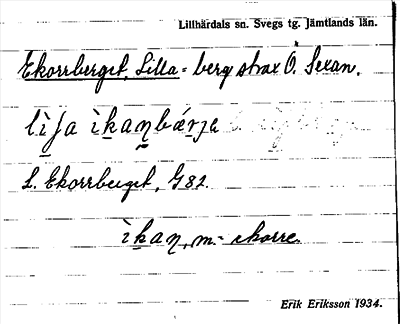 Lillhärdals sn. Svegs tg. Jämtlands län.
Ekorrberget, Lilla = berg strax Ö. Sexan.
lìʃa ìkaŋbárɟe
L. Ekorrberget, G82.
ìkaŋ, m. = ekorre
Erik Eriksson 1934.